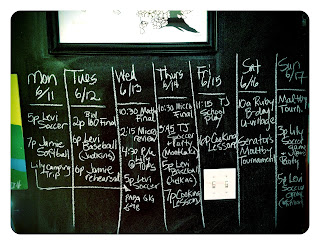 Mon
6/11
5p Levi
Soccer
7p Jamie
Softball
Lily camping
trip
Tues
6/12
2p IBD Final
6p Levi
Baseball
(Judkins)
6p Jamie
rehearsal
Wed
6/13
10:30 Math
Final
2:15 Micro
review
4:30 P/u
5p Levi
Soccer
Thurs
6/14
10:30 Micro
Final
3:45 TJ
Soccer
+ Party
5p Levi
Baseball
7p Cooking
Lesson
Fri
6/15
11:15 TJ
School
Play
6p Cooking
Lesson
Sat
6/16
10a Ruby
Bday
Senators
Mattoy
Tournament
Sun
6/17
Mattoy
Tourn.
3p Lily
Soccer
game
Party
5p Levi
Soccer
game